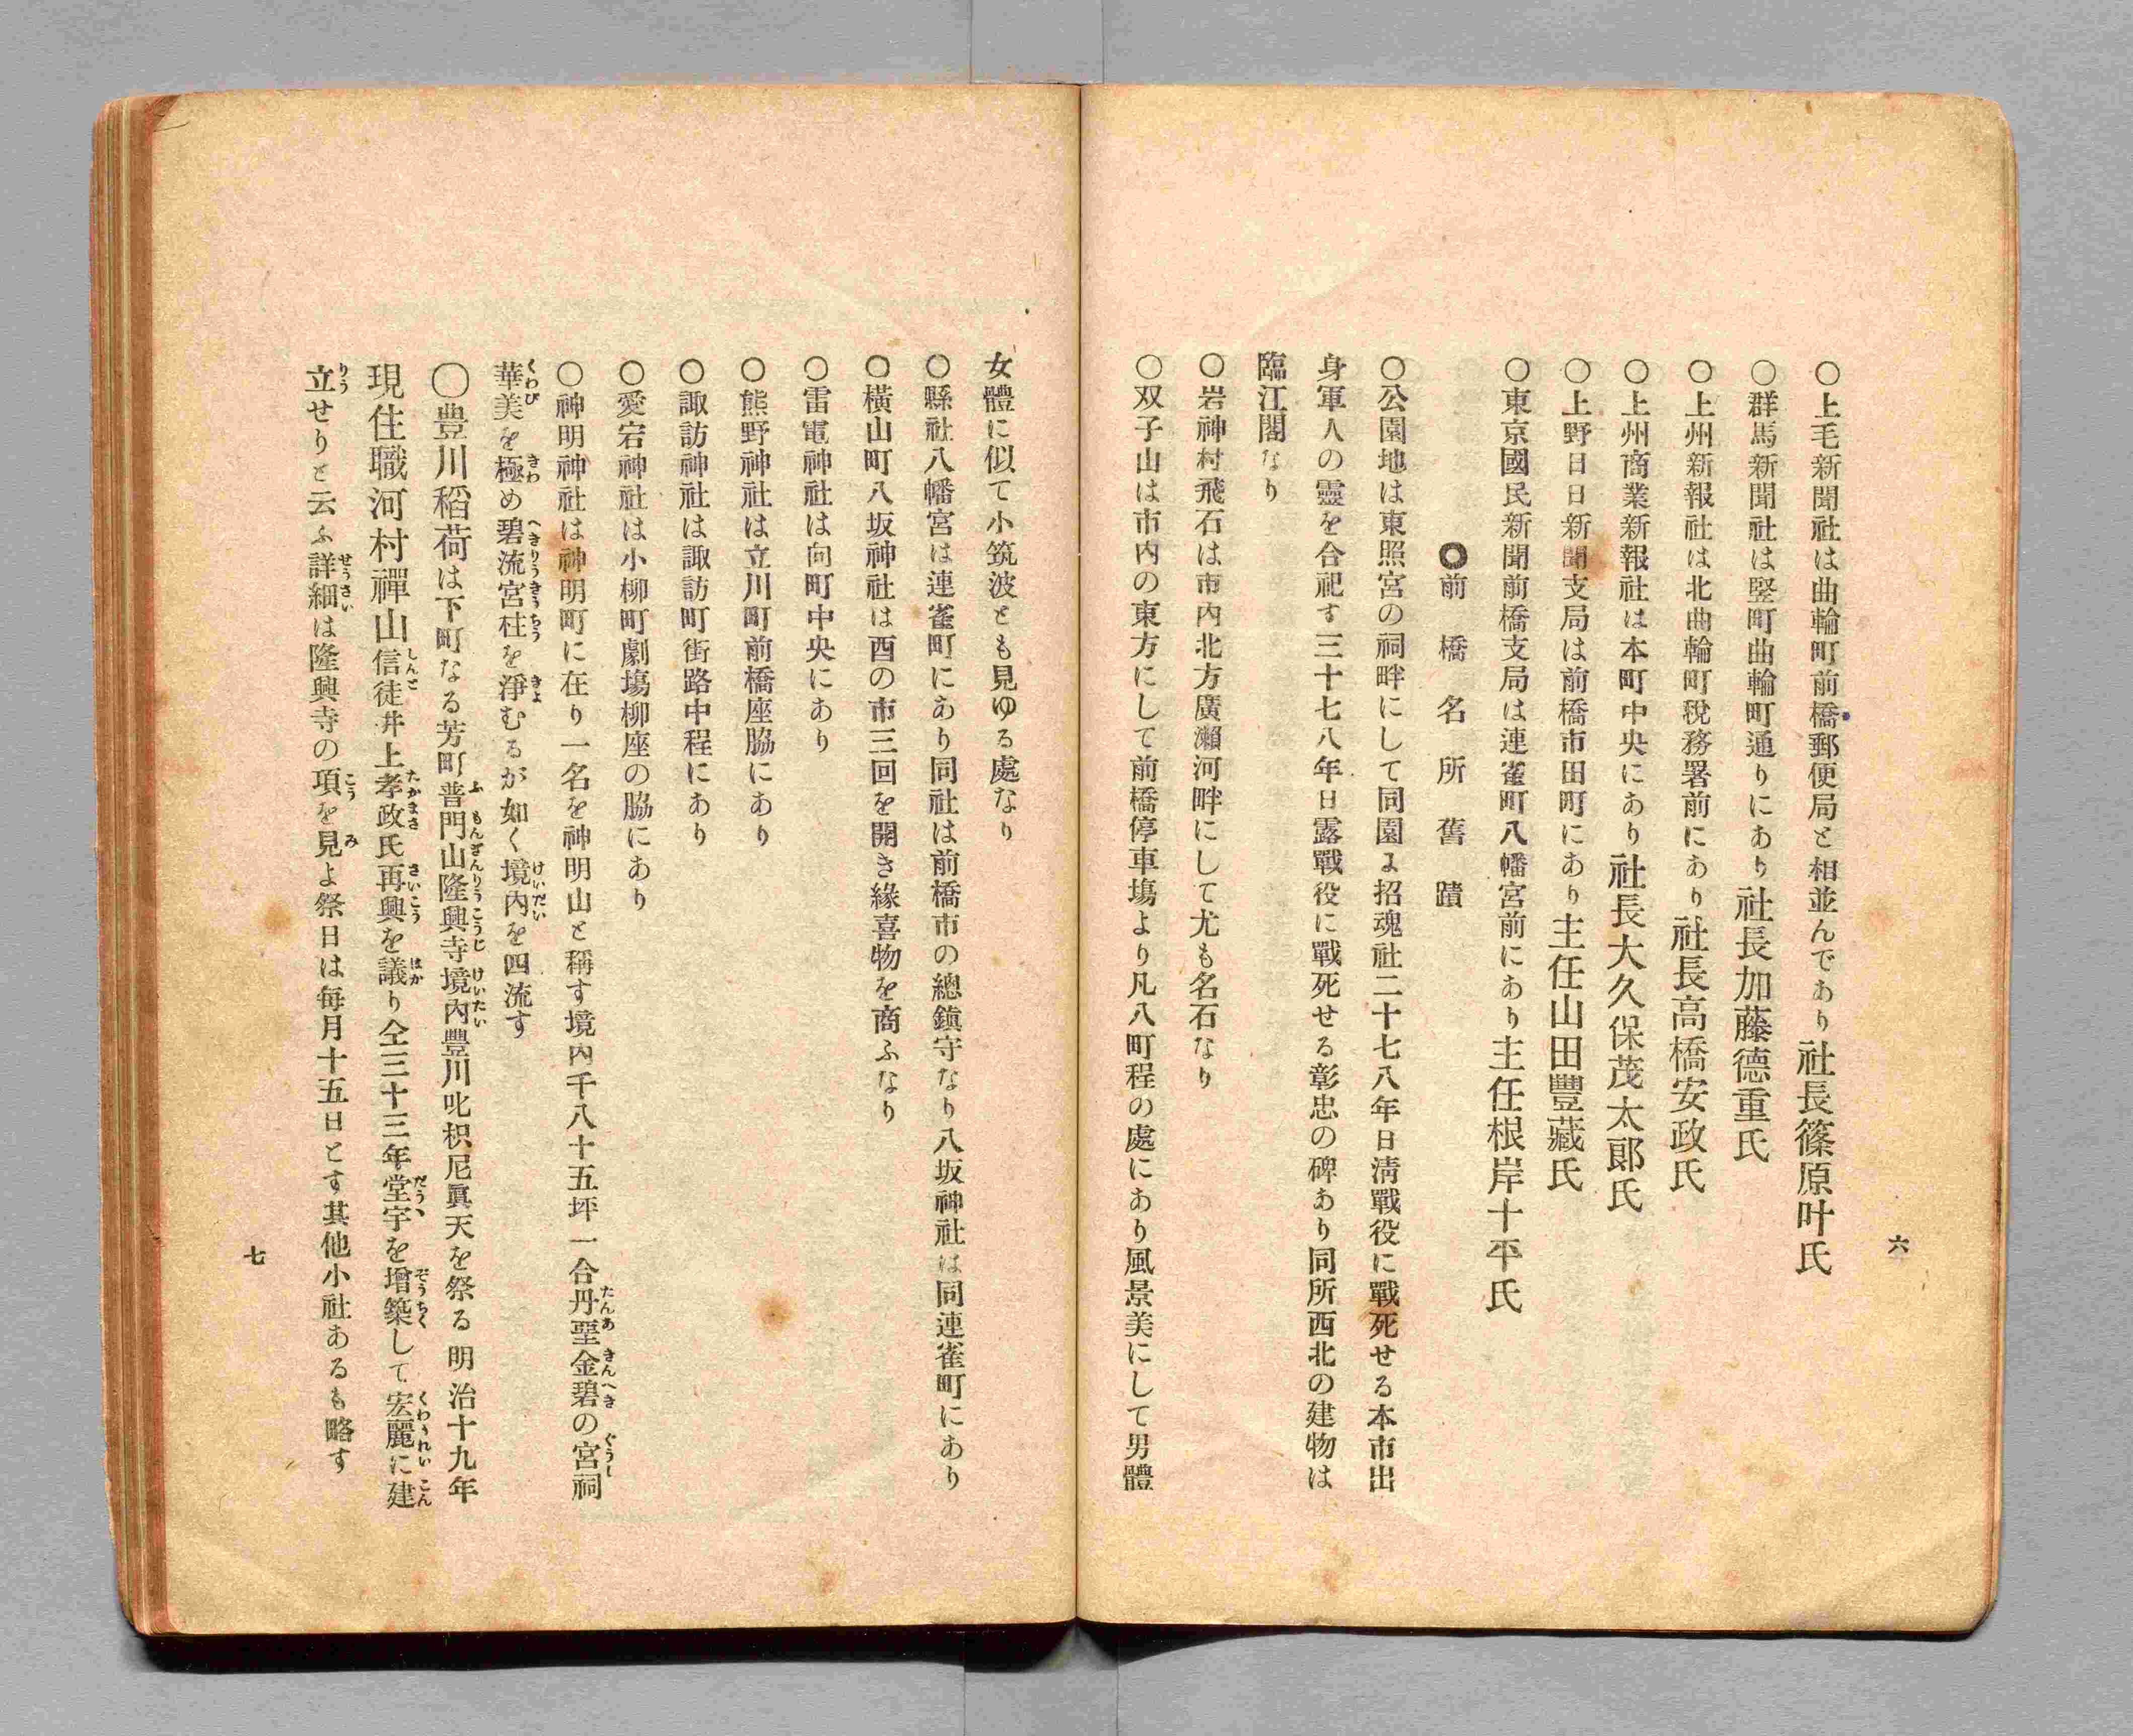 六
〇上毛新聞社は曲輪町前橋郵便局と相並んであり社長篠原叶氏
〇群馬新聞社は竪町曲輪町通りにあり社長加藤德重氏
〇上州新報社は北曲輪町稅務署前にあり社長高橋安政氏
〇上州商業新報社は本町中央にあり社長大久保茂太郞氏
〇上野日日新聞支局は前橋市田町にあり主任山田豐藏氏
〇東京國民新聞前橋支局は連雀町八幡宮前にあり主任根岸十平氏
◎前橋名所舊蹟
〇公園地は東照宮の祠畔にして同園よ招魂社二十七八年日淸戰役に戰死せる本市出
身軍人の靈を合祀す三十七八年日露戰役に戰死せる彰忠の碑あり同所西北の建物は
臨江閣なり
〇岩神村飛石は市内北方廣瀨河畔にして尤も名石なり
〇双子山は市内の東方にして前橋停車塲より凡八町程の處にあり風景美にして男體
女體に似て小筑波とも見ゆる處なり
〇縣社八幡宮は連雀町にあり同社は前橋市の總鎭守なり八坂神社は同連雀町にあり
〇橫山町八坂神社は酉の市三回を開き緣喜物を商ふなり
〇雷電神社は向町中央にあり
〇熊野神社は立川町前橋座脇にあり
〇諏訪神社は諏訪町街路中程にあり
〇愛宕神社は小柳町劇塲柳座の脇にあり
〇神明神社は神明町に在り一名を神明山と稱す境内千八十五坪一合丹堊金碧の宮祠
華美を極め碧流宮柱を淨むるが如く境内を四流す
〇豊川稻荷は下町なる芳町普門山隆興寺境內豐川叱枳尼眞天を祭る明治十九年
現住職河村禪山信徒井上孝政氏再興を議り仝三十三年堂宇を增築して宏麗に建
立せりと云ふ詳細は隆興寺の項を見よ祭日は每月十五日とす其他小社あるも略す
七